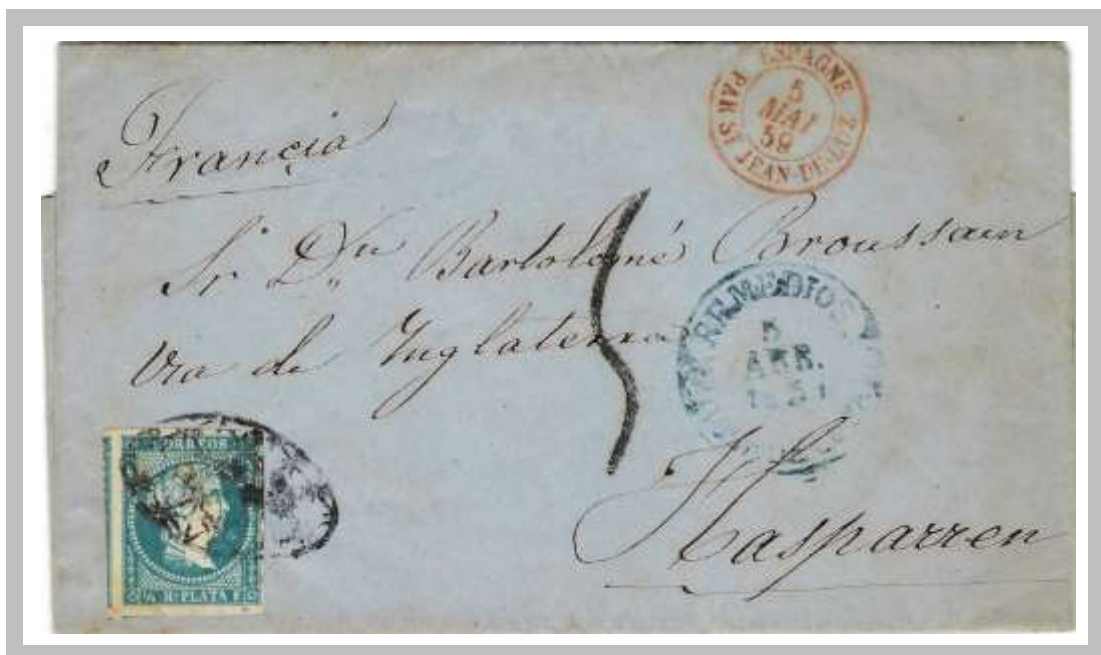 Francia
ESPAGNE
5
MAI
59
PAR ST JEAN-DE-LUZ
Sr Dn Bartolomé Broussain
Via de Inglaterra
REMEDIOS
5
ABR.
Hasparren
CORREOS
½ Rl PLATA F